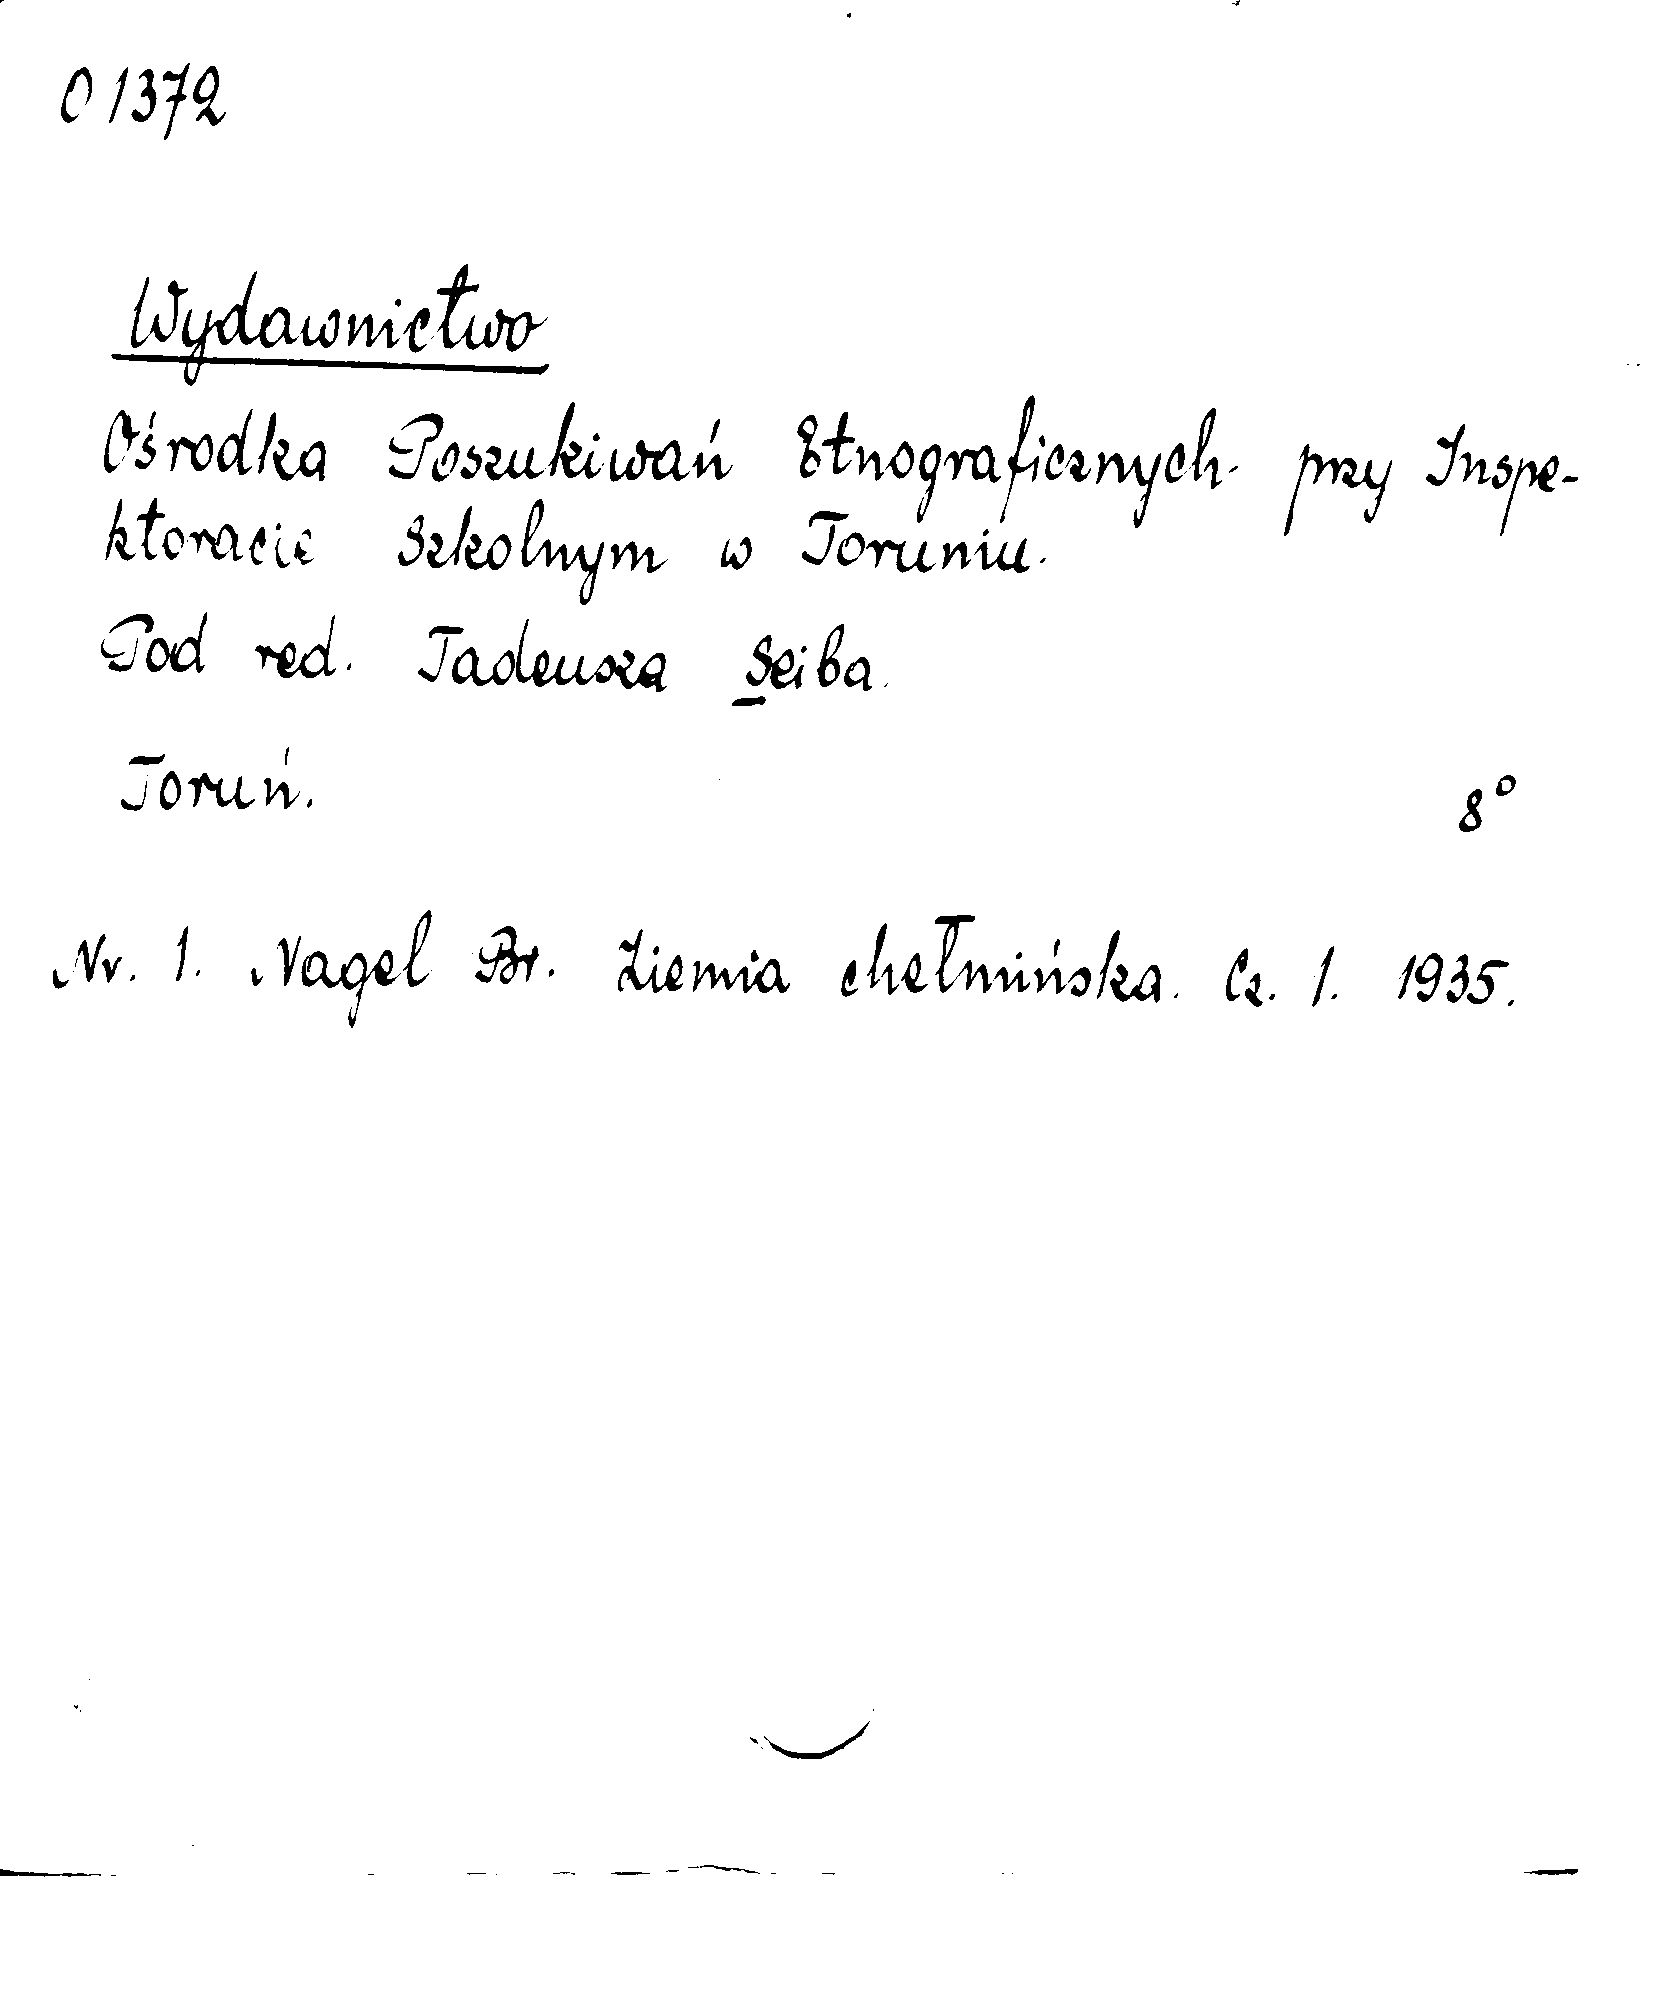 O 1372
Wydawnictwo
Ośrodka Poszukiwań Etnograficznych przy Inspe-
ktoracie Szkolnym w Toruniu.
Pod red. Tadeusza Seiba.
Toruń. 8°
Nr. 1. Nagel Br. Ziemia chełmińska. Cz. 1. 1935.